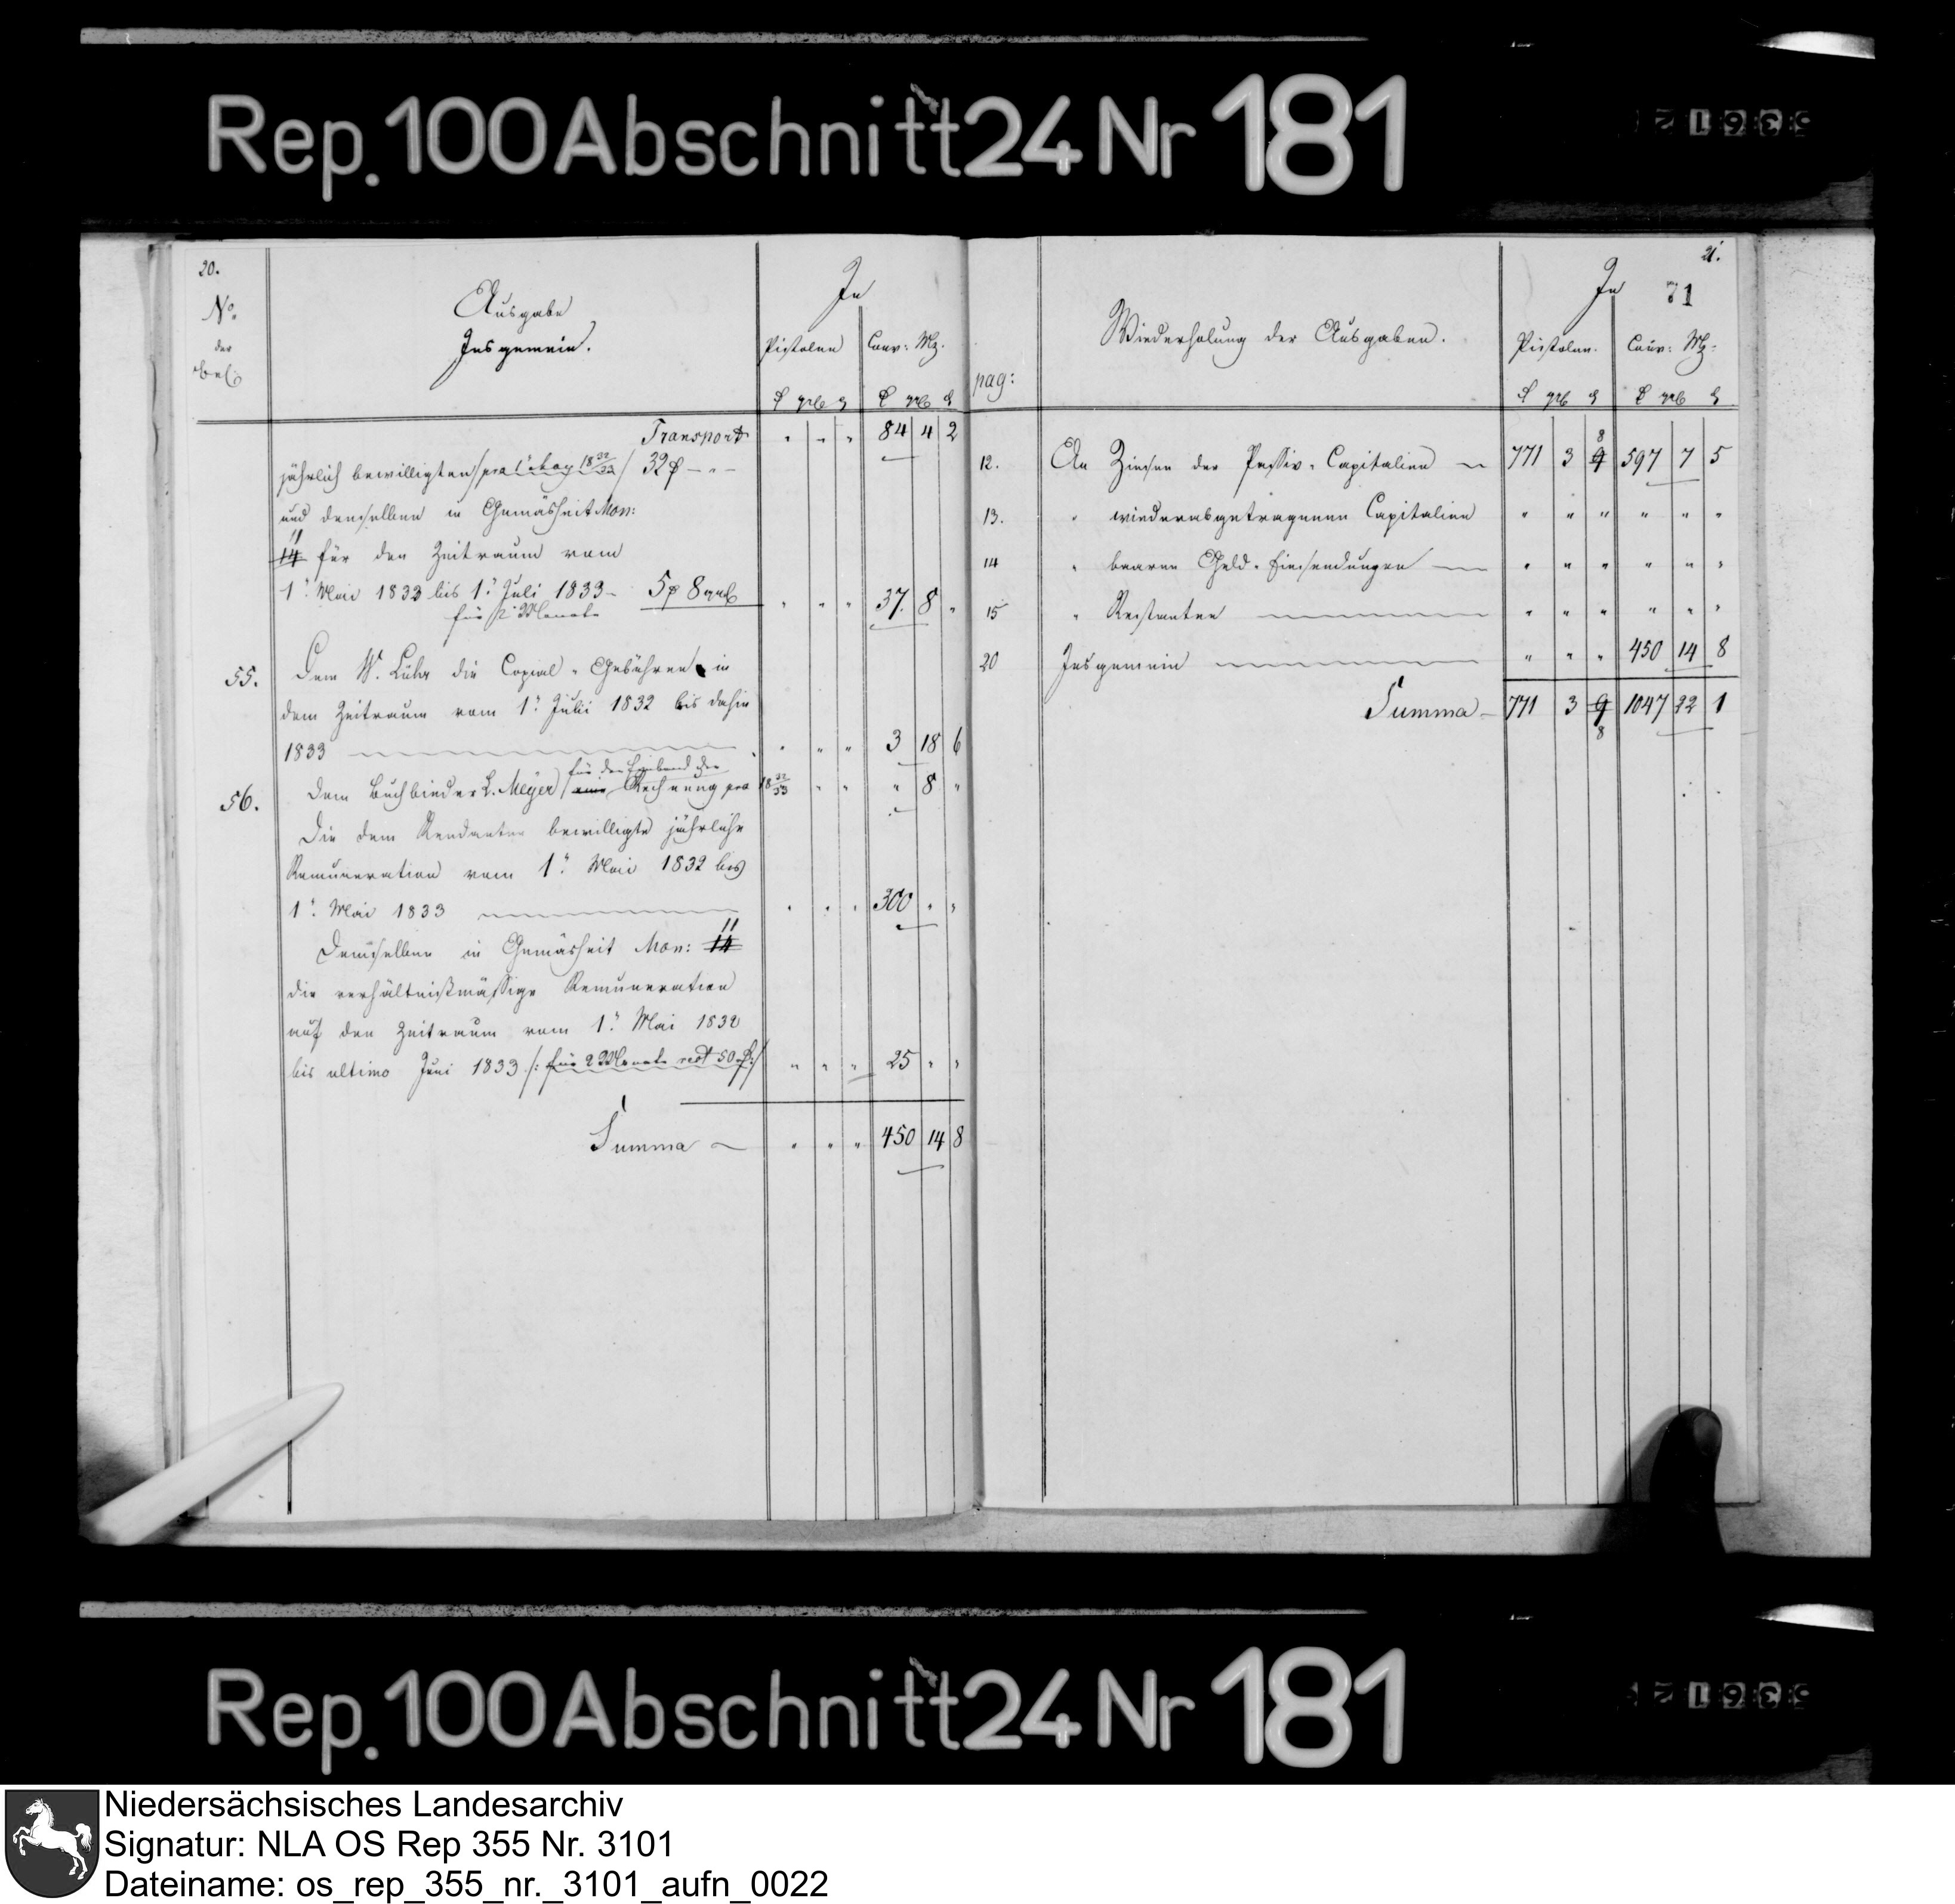 Rep. 100 Abschnitt 24 Nr 181
53612
20.
No.
der
Bel.
Ausgabe
Insgemein.
In
Pistolen Conv: Mz.
₰ ggl ₰ ₰ ggl ₰
Transport " " " 84 4 2
jährlich bewilligten /pro 1t May 18 32/33/ 32 ₰ - " -
und demselben in Gemäsheit Mon:
11
14 für den Zeitraum vom
1t Mai 1833 bis 1t Juli 1833 - 5 ₰ 8 ggl " " " 37. 8 "
für 2 Monate
55. Dem W. Lühr die Copial-Gebühren in
dem Zeitraum vom 1t Julii 1832 bis dahin
1833 " " " 3 18 6
für den Einband der
56. Dem Buchbinder L. Meyer / eine Rechnung pro 18 32/33 " " " 8 "
Die dem Rendanten bewilligte jährliche
Remuneration vom 1t Mai 1832 bis
1t Mai 1833 " " " 300 " "
11
Demselben in Gemäsheit Mon: 14
die verhältnißmässige Remuneration
auf den Zeitraum vom 1t Mai 1832
bis ultimo Juni 1833 /: für 2 Monate 50 ₰ :/ " " " 25 " "
Summa " " " 450 14 8
21.
71
pag:
Wiederholung der Ausgaben.
In
Pistolen. Conv: Mz:
₰ ggl ₰ ₰ ggl ₰
8
12. An Zinsen der Passiv-Capitalien 771 3 9 597 7 5
13. " wiederabgetragenen Capitalien " " " " " "
14 " baaren Geld-Einsendungen " " " " " "
15 " Restanten " " " " " "
20 Insgemein " " " 450 14 8
Summa 771 3 9 1047 22 1
8
Rep. 100 Abschnitt 24 Nr 181
53612
Niedersächsisches Landesarchiv
Signatur: NLA OS Rep 355 Nr. 3101
Dateiname: os_rep_355_nr._3101_aufn_0022